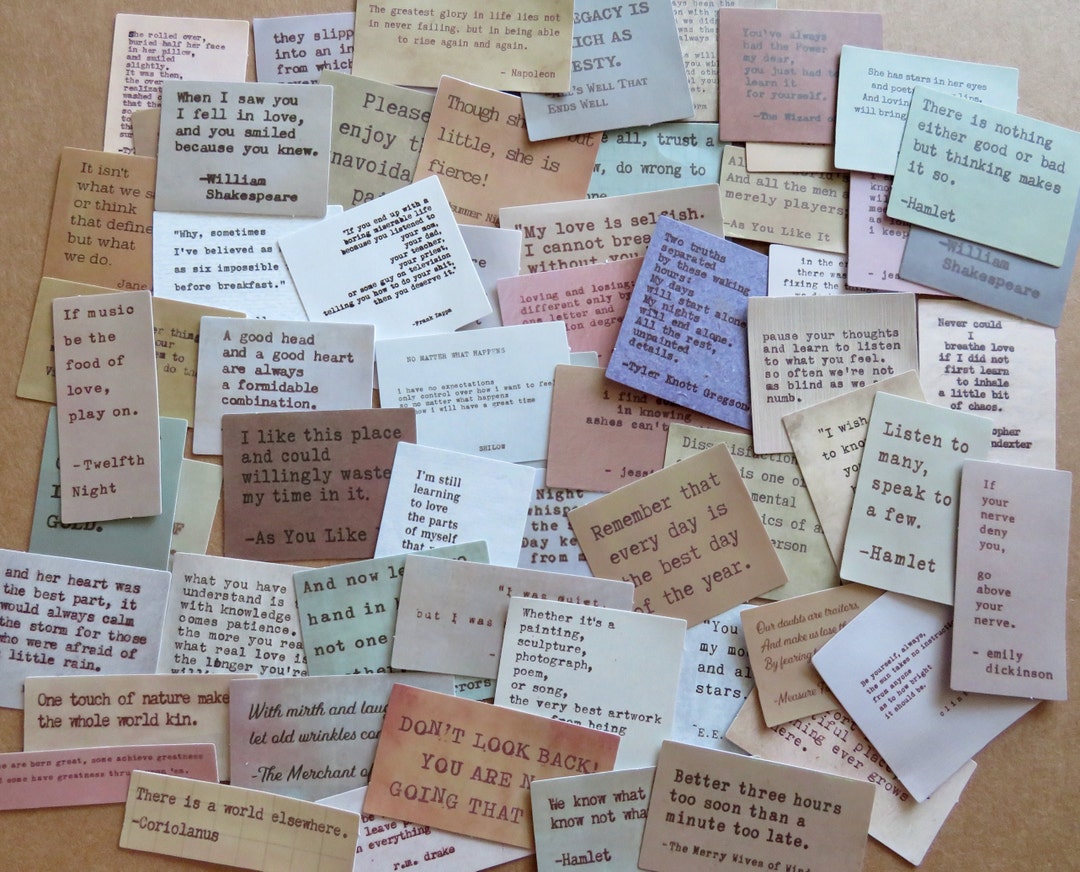 She rolled over,
buried half her face
in her pillow,
and smiled
slightly.
It was then,
the over
washed
that the
they slipp
into an in
from which
The greatest glory in life lies not
in never failing, but in being able
to rise again and again.
- Napoleon
EGACY IS
ICH AS
ESTY.
L'S WELL THAT
ENDS WELL
You've always
had the Power
my dear,
you just had to
learn it
for yourself.
-The Wizard o
She has stars in her eyes
and poet
And loving
will bring
There is nothing
either good or bad
but thinking makes
it so.
-Hamlet
-William
Shakespeare
When I saw you
I fell in love,
and you smiled
because you knew.
-William
Shakespeare
Please
enjoy t
navoida
pa
Though sh
little, she is
fierce!
SUMMER NI
e all, trust a
w, do wrong to
All
And all the men
merely players;
-As You Like It
- jess
It isn't
what we s
or think
that define
but what
we do.
Jane
"Why, sometimes
I've believed as
as six impossible
before breakfast."
"If you end up with a
boring miserable life
because you listened to
your mom,
your dad,
your teacher,
your priest,
or some guy on television
telling you how to do your shit,
then you deserve it."
-Frank Zappa
"My love is selfish.
I cannot brea
without you
loving and losing
different only by
one letter and
ion degra
Two truths
separated
by these waking
hours:
My days
will start alone.
My nights
will end alone.
All the rest,
unpainted
details.
-Tyler Knott Gregson
in the e
there was
fixing the
pause your thoughts
and learn to listen
to what you feel.
so often we're not
as blind as we a
numb.
Never could
I
breathe love
if I did not
first learn
to inhale
a little bit
of chaos.
opher
ndexter
If music
be the
food of
love,
play on.
-Twelfth
Night
er thing
our
em to
A good head
and a good heart
are always
a formidable
combination.
NO MATTER WHAT HAPPENS
i have no expectations
only control over how i want to feel
so no matter what happens
now i will have a great time
SHILOW
i find
in knowing
ashes can't
- jessi
GOLD.
I like this place
and could
willingly waste
my time in it.
-As You Like
I'm still
learning
to love
the parts
of myself
that
Night
whisp
the
Day ke
from m
Remember that
every day is
the best day
of the year.
Diss
is one o
mental
ics of a
erson
"I wish
to know
yo
Listen to
many,
speak to
a few.
-Hamlet
If
your
nerve
deny
you,
go
above
your
nerve.
- emily
dickinson
and her heart was
the best part, it
would always calm
the storm for those
who were afraid of
little rain.
what you have
understand is
with knowledge
comes patience.
the more you
what real love
the longer you're
And now le
hand in
not one
"I was quiet,
but I was
errors
Whether it's a
painting,
sculpture,
photograph,
poem,
or song,
the very best artwork
from being
"You
my mo
and al
stars.
E.E.
Our doubts are traitors
And make us lose th
By fearing
-Measure
Be yourself, always,
the sun takes no instructi
from anyone
as to how bright
it should be.
tiful pla
ning ever grows
here.
One touch of nature make
the whole world kin.
With mirth and laug
let old wrinkles co
-The Merchant of
DON'T LOOK BACK!
YOU ARE N
GOING THAT
e are born great, some achieve greatness
d some have greatness thru
There is a world elsewhere.
-Coriolanus
leave
n everything
r.m. drake
We know what
know not wha
-Hamlet
Better three hours
too soon than a
minute too late.
-The Merry Wives of Win